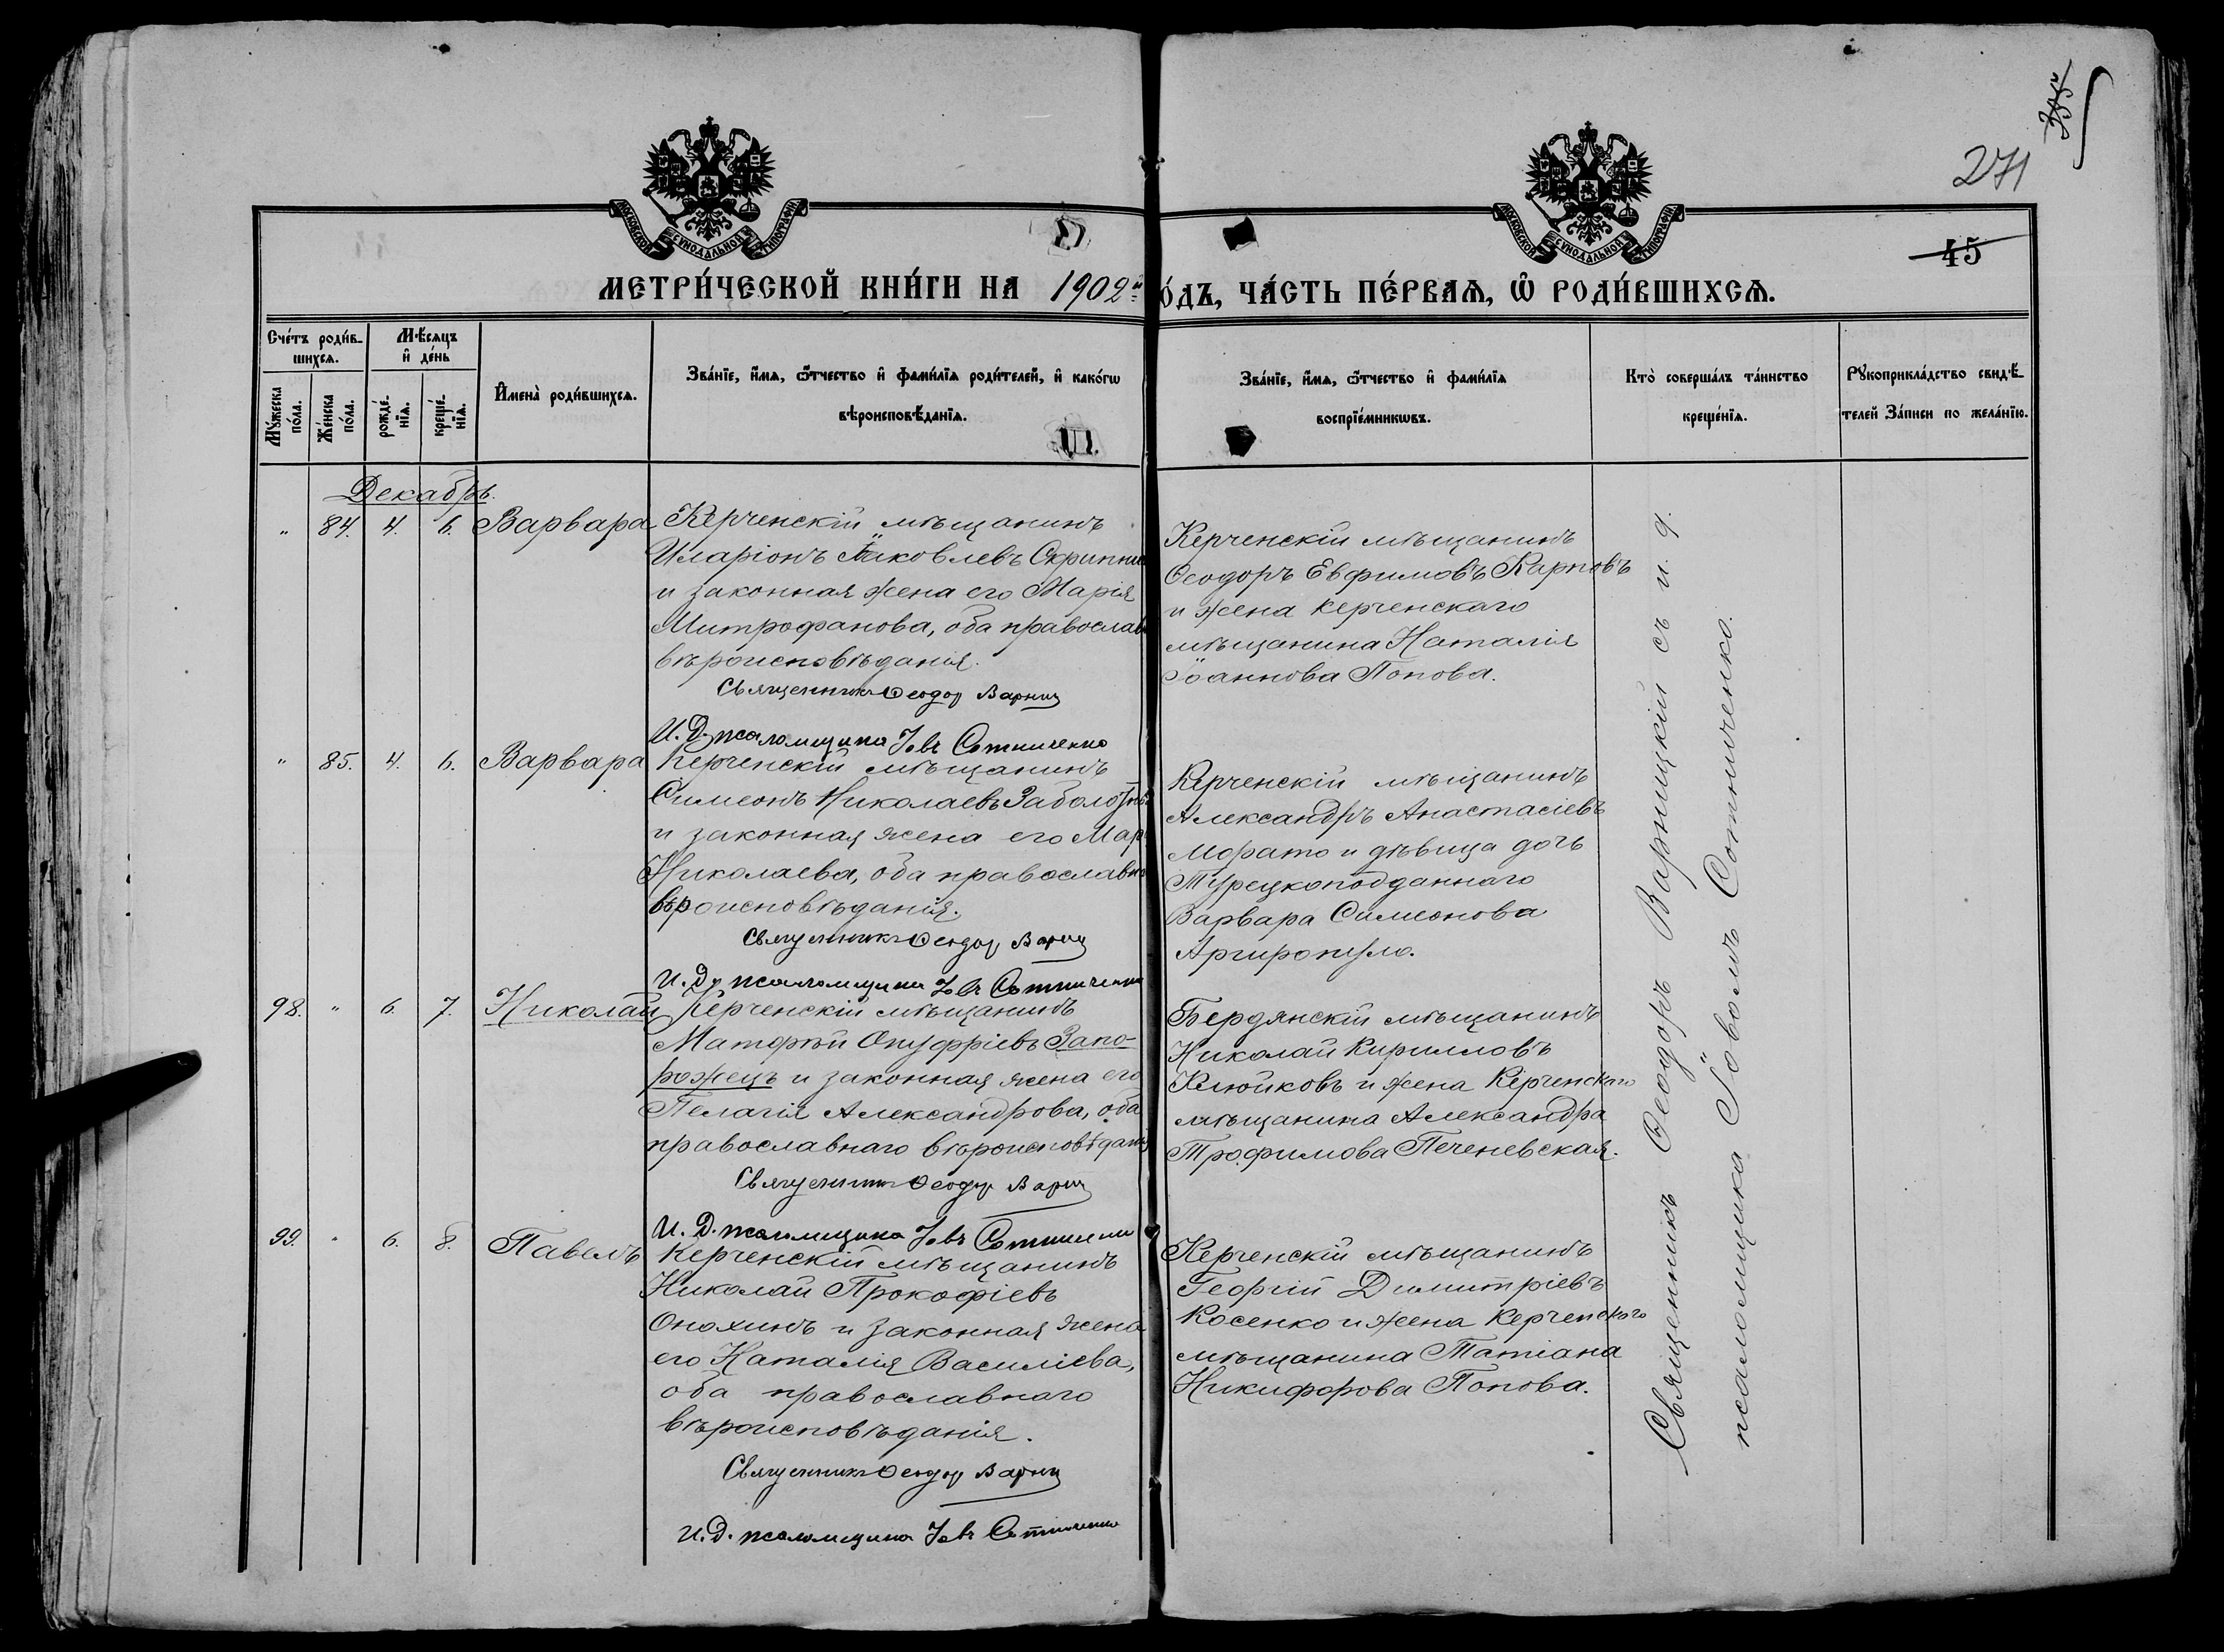 271
45
МОСКОВСКОЙ СѴНОДАЛЬНОЙ ТИПОГРАФІИ
МОСКОВСКОЙ СѴНОДАЛЬНОЙ ТИПОГРАФІИ
МЕТРИ́ЧЕСКОЙ КНИ́ГИ НА 1902й
О́ДЪ, ЧА́СТЬ ПЕ́РВАѦ, Ѡ҆ РОДИ́ВШИХСѦ.
Сче́тъ роди́в-
шихсѧ.
Мѣ́сѧцъ
и҆ де́нь
Мꙋ́жеска
по́ла.
Же́нска
по́ла.
рожде́-
нїѧ.
креще́-
нїѧ.
И҆мена̀ роди́вшихсѧ.
Зва́нїе, и҆́мѧ, ѻ҆́тчество и҆ фами́лїѧ роди́телей, и҆ како́гѡ
вѣроисповѣ́данїѧ.
Зва́нїе, и҆́мѧ, ѻ҆́тчество и҆ фами́лїѧ
воспрїе́мникѡвъ.
Кто̀ соверша́лъ та́инство
креще́нїѧ.
Рꙋкоприкла́дство свидѣ́-
телей За́писи по жела́нїю.
Декабрь.
" 84. 4. 6. Варвара
Керченскій мѣщанинъ
Иларіонъ Яковлевъ Скрипни
и законная жена его Марія
Митрофанова, оба православ
вѣроисповѣданія.
Священникъ Ѳеодор Варниц
И. Д. псаломщика Іовъ Сотниченко
Керченскій мѣщанинъ
Ѳеодоръ Евфимовъ Карповъ
и жена керченскаго
мѣщанина Наталія
Іоаннова Попова.
" 85. 4. 6. Варвара
Керченскій мѣщанинъ
Симеонъ Николаевъ Заболотн
и законная жена его Мар
Николаева, оба православн
вѣроисповѣданія.
Священникъ Ѳеодор Варниц
И. Д. псаломщика Іовъ Сотниченко
Керченскій мѣщанинъ
Александръ Анастасіевъ
Морато и дѣвица дочь
Турецкоподданнаго
Варвара Симеонова
Аргиропуло.
98. " 6. 7. Николай
Керченскій мѣщанинъ
Матфѣй Онуфріевъ Запо-
рожецъ и законная жена его
Пелагія Александрова, оба
православнаго вѣроисповѣдані
Священникъ Ѳеодор Варниц
И. Д. псаломщика Іовъ Сотниченко
Бердянскій мѣщанинъ
Николай Кирилловъ
Клюйковъ и жена Керченскаго
мѣщанина Александра
Трофимова Печеневская.
99. " 6. 8. Павелъ
Керченскій мѣщанинъ
Николай Прокофіевъ
Онохинъ и законная жена
его Наталія Василіева,
оба православнаго
вѣроисповѣданія.
Священникъ Ѳеодор Варниц
И. Д. псаломщика Іовъ Сотниченко
Керченскій мѣщанинъ
Георгій Димитріевъ
Косенко и жена Керченскаго
мѣщанина Татіана
Никифорова Попова.
Священникъ Ѳеодоръ Варницкій съ и. д.
псаломщика Іовомъ Сотниченко.